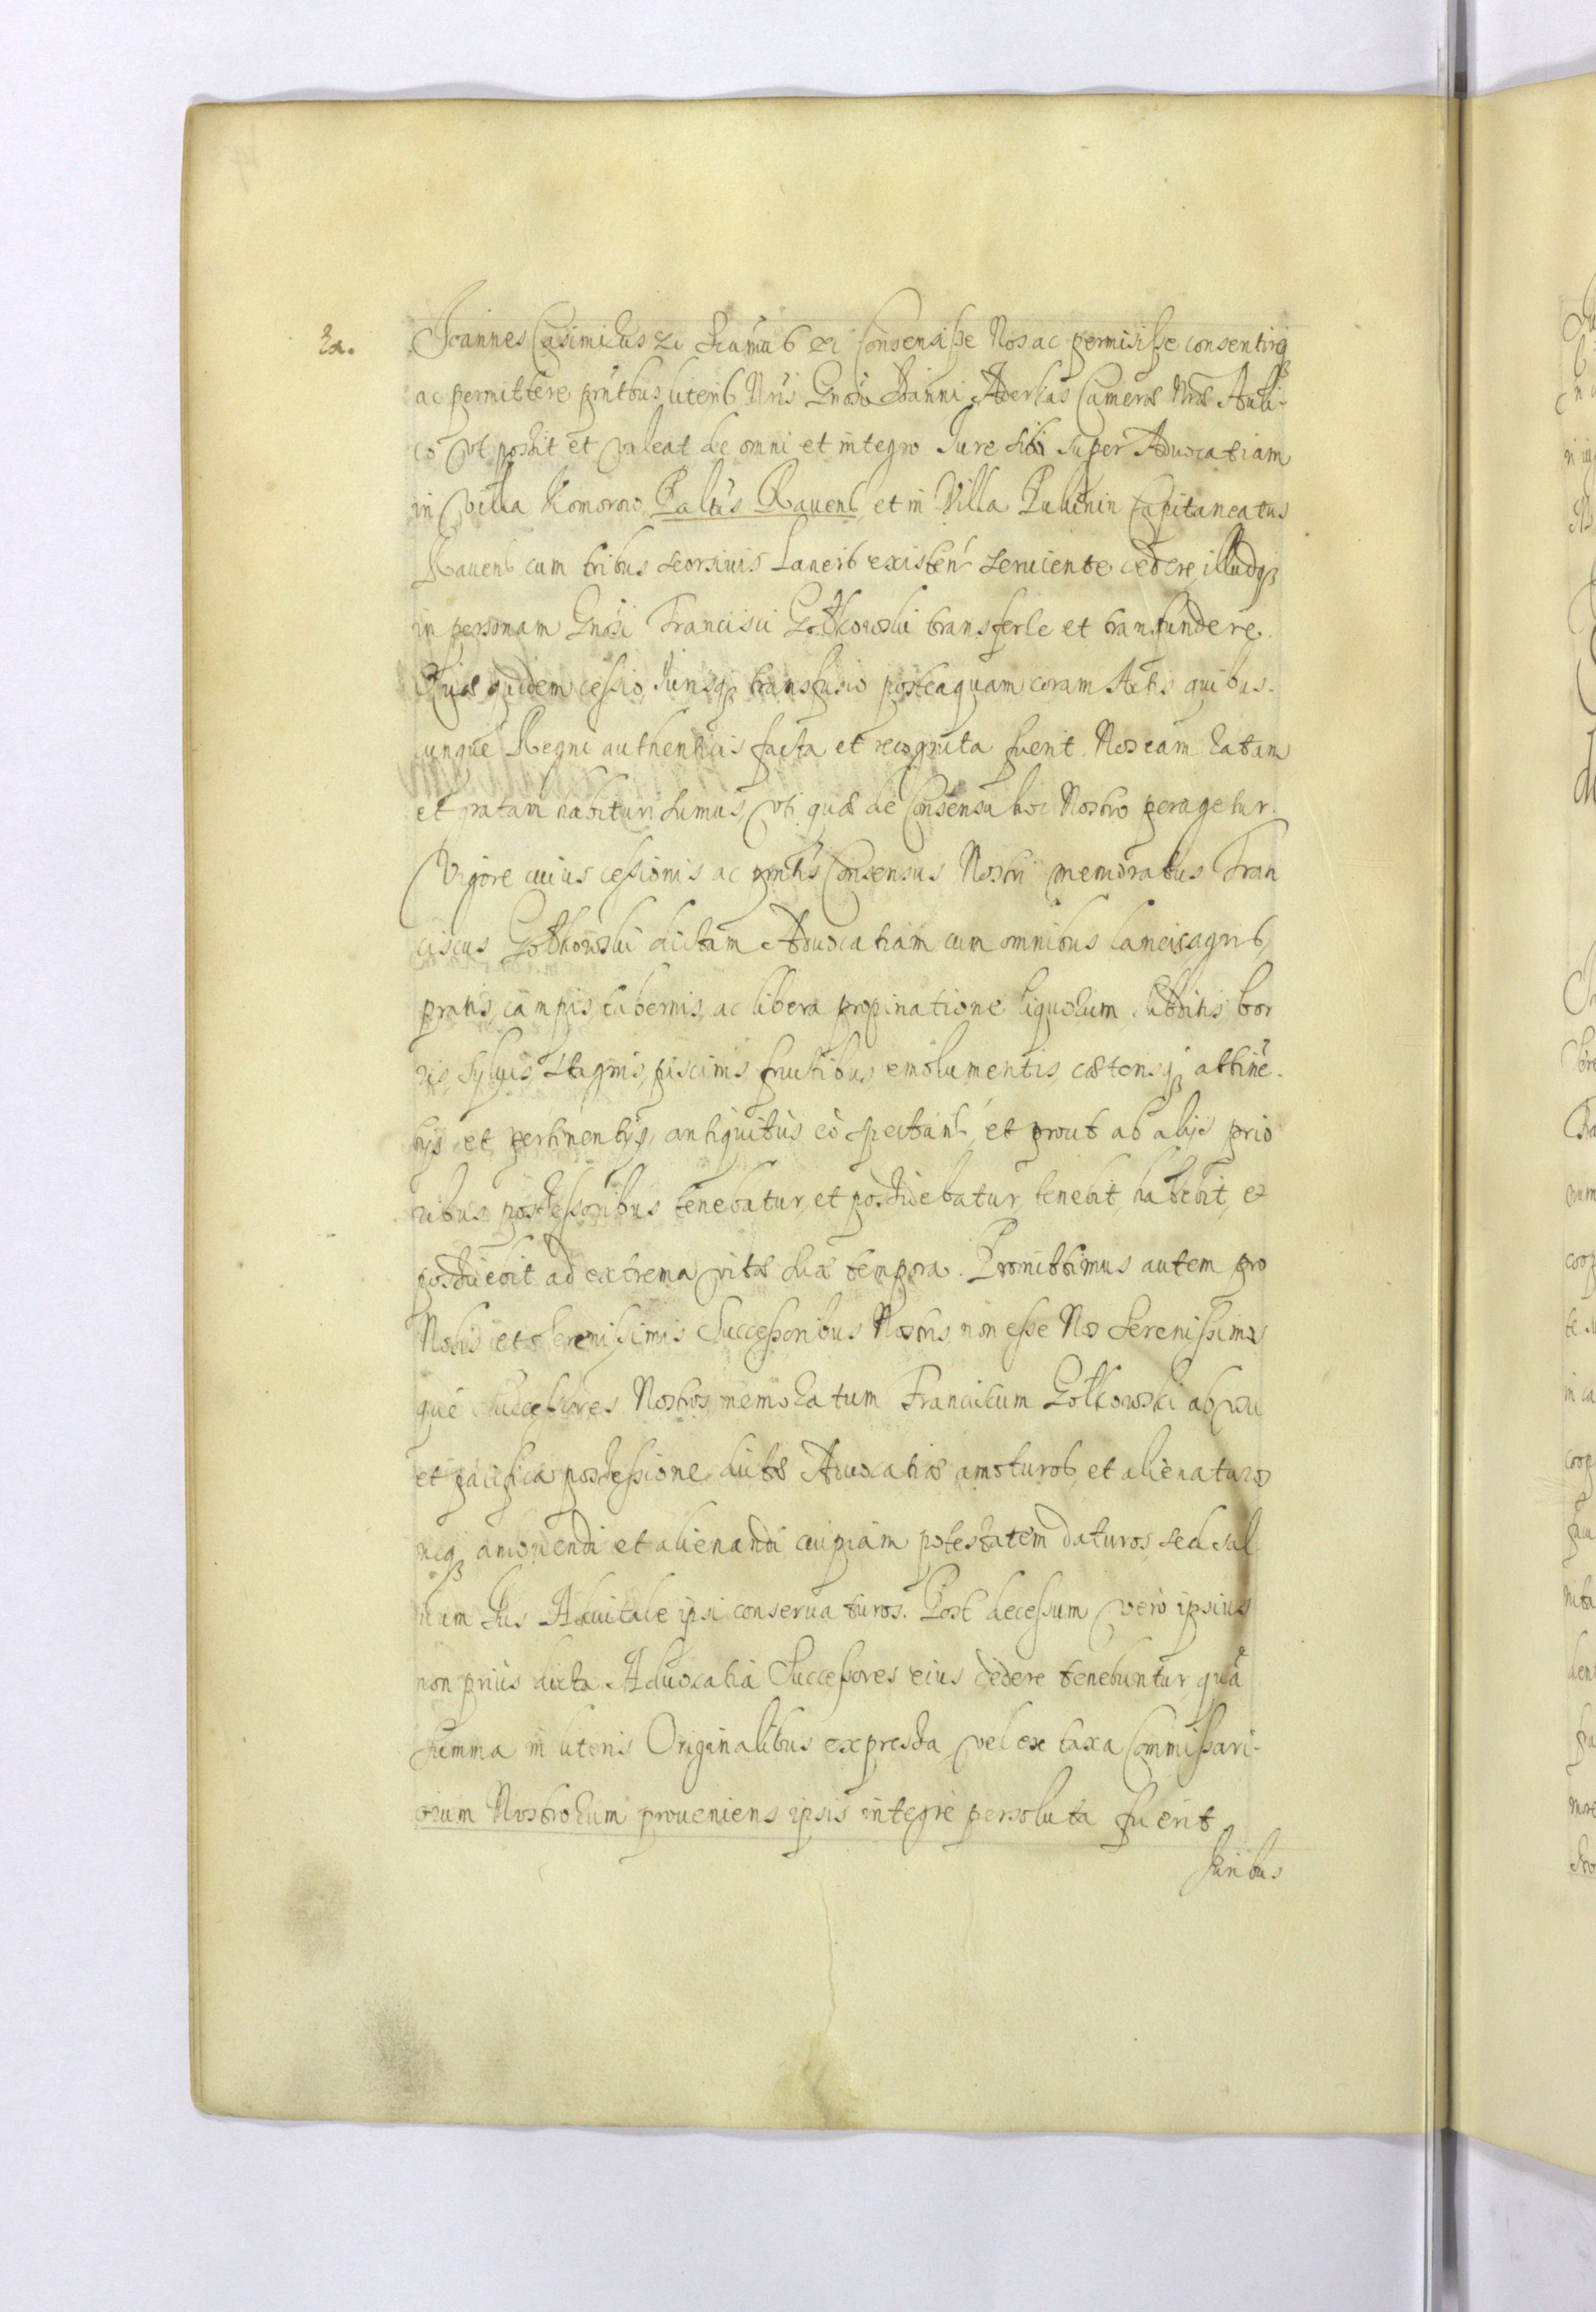 Ex. Joannes Casimirus &c Signamus &c Consensisse Nos ac permisisse consentireq
ac permittere pntbus literis Nris Gnoso Joanni Aderkas Cameræ Nræ Auli-
co vt possit et valeat de omni et integro Jure sibi super Aduocatiam
in Villa Komorow Paltus Rauens, et in Villa Lubenin Capitaneatus
Rauens cum tribus seorsiuis Laneis existen seruiente cedere, illudq
in personam Gnosi Francisci Gotkowski transferre et transfundere.
Quæ quidem cessio, Jurisq transfusio posteaquam coram Actis quibus-
cunque Regni authenticis facta et recognita fuerit. Nos eam ratam
et gratam habituri sumus, vti quæ de Consensu hoc Nostro peragetur.
Vigore cuius cessionis ac pntis Consensus Nostri memoratus Fran
ciscus Gotkowski dictam Aduocatiam cum omnibus laneis agris,
pratis, campis, tabernis, ac libera propinatione liquorum, subditis, bor
ris, syluis, stagnis, piscinis, fructibus, emolumentis, cæterisq attine-
tijs et pertinentijs, antiquitùs eò spectan, et prout ab alijs prio
ribus possessoribus tenebatur, et possidebatur, tenebit, habebit, et
possidebit ad extrema vitæ suæ tempora. Promittimus autem pro
Nobis et Serenissimis Successoribus Nostris non esse Nos Serenissimos
que Successores Nostros memoratum Franciscum Gotkowski ab vsu
et pacifica possessione dictæ Aduocatiæ amoturos, et alienaturos
neq amouendi et alienandi cuipiam potestatem daturos, sed sal
uum Jus Aduitale ipsi conseruaturos. Post decessum verò ipsius
non priùs dicta Aduocatia Successores eius cedere tenebuntur, quã
summa in literis Originalibus expressa, vel ex taxa Commissari-
orum Nostrorum proueniens ipsis integrè persoluta fuerit
Juribus